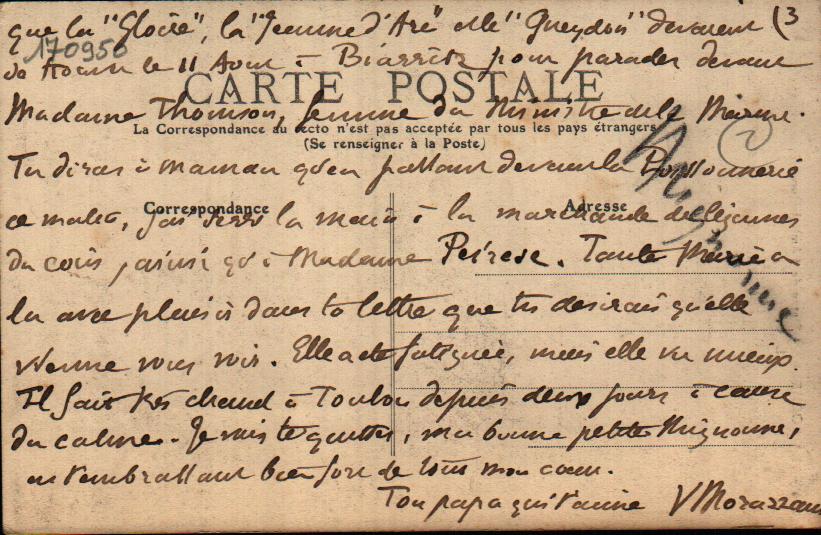 que la "Gloire", la "Jeanne d'Arc" et le "Gueydon" devaient (3
170950
se réunir le 11 Aout à Biarritz pour parader devant
CARTE POSTALE
Madame Thomson, femme du Ministre de la Marine.
La Correspondance au recto n'est pas acceptée par tous les pays étrangers
(Se renseigner à la Poste)
2
Tu diras à maman qu'en passant devant la Poissonnerie
Correspondance
Adresse
ce matin, j'ai serré la main à la marchande de légumes
du cours, ainsi qu'à Madame Peiresc. Tante Marie a
lu avec plaisir dans ta lettre que tu désirais qu'elle
vienne vous voir. Elle a été fatiguée, mais elle va mieux.
Il fait très chaud à Toulon depuis deux jours à cause
du calme. Je vais te quitter, ma bonne petite Mignonne,
en t'embrassant bien fort de tout mon coeur.
Ton papa qui t'aime V Morazzani
Mignonne